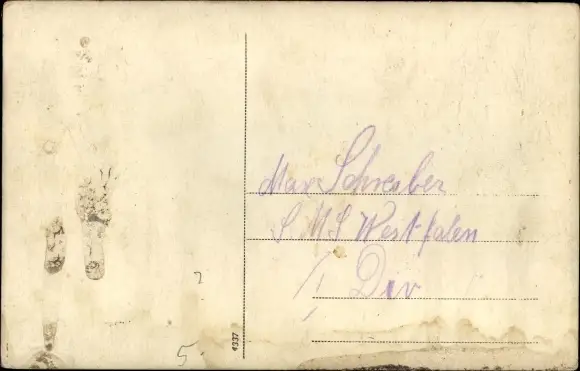 Max Schreiber
S M S Westfalen
1/1 Div
2
5.
4337